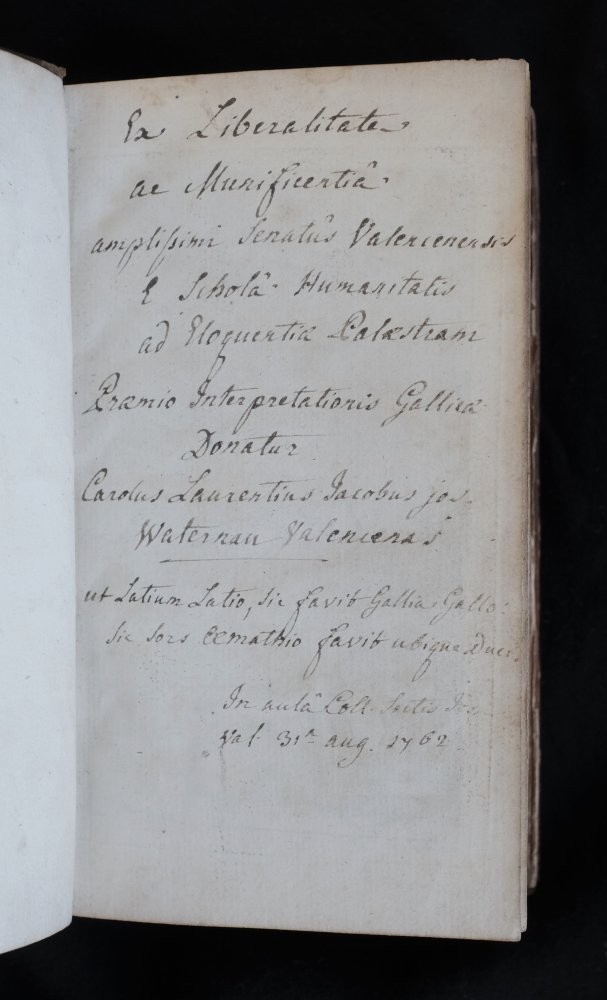 Ex Liberalitate
ac Munificentiâ
amplissimi Senatûs Valencenensis
E Scholâ Humanitatis
ad Eloquentiæ Palæstram
Præmio Interpretationis Gallicæ
Donatur
Carolus Laurentius Jacobus jos.
Waternau Valencenas
ut Latium Latio, sic favit Gallia Gallo:
Sic sors Œmathio favit ubique Duci.
In aulâ Coll. Soctis
Val. 31ª aug. 1762